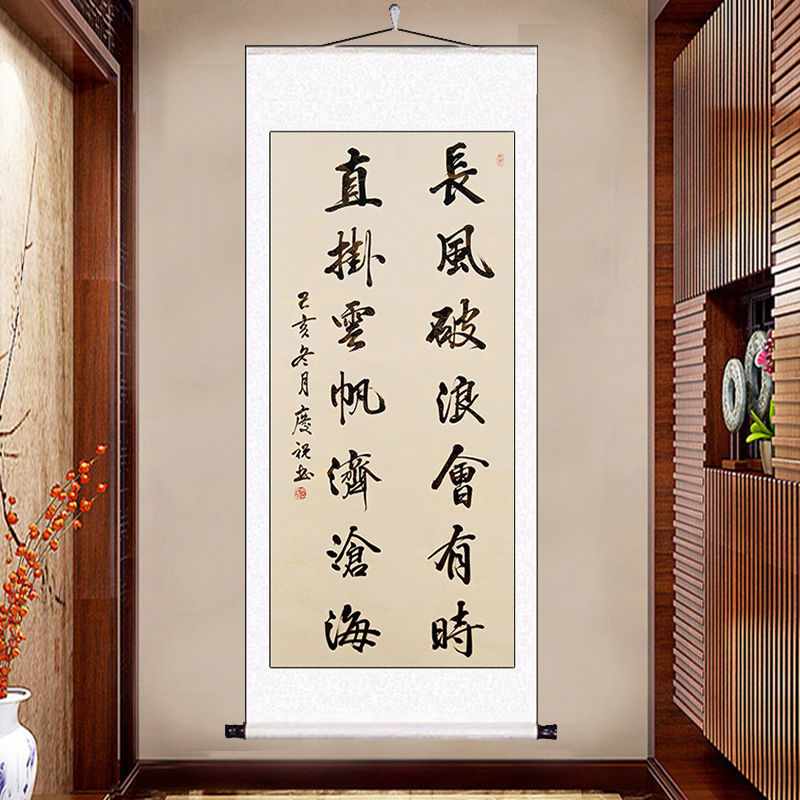 長風破浪會有時
直掛雲帆濟滄海
己亥冬月慶祝书